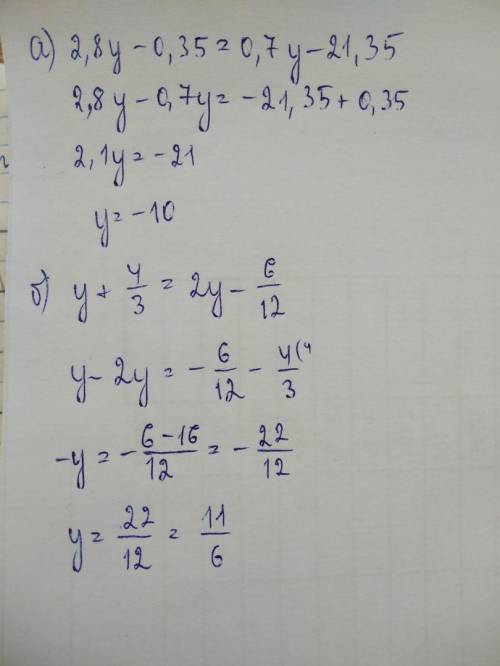 а) 2,8y - 0,35 = 0,7y - 21,35
2,8y - 0,7y = -21,35 + 0,35
2,1y = -21
y = -10
б) y + 4/3 = 2y - 6/12
y - 2y = - 6/12 - 4(4/3
-y = - 6-16/12 = - 22/12
y = 22/12 = 11/6